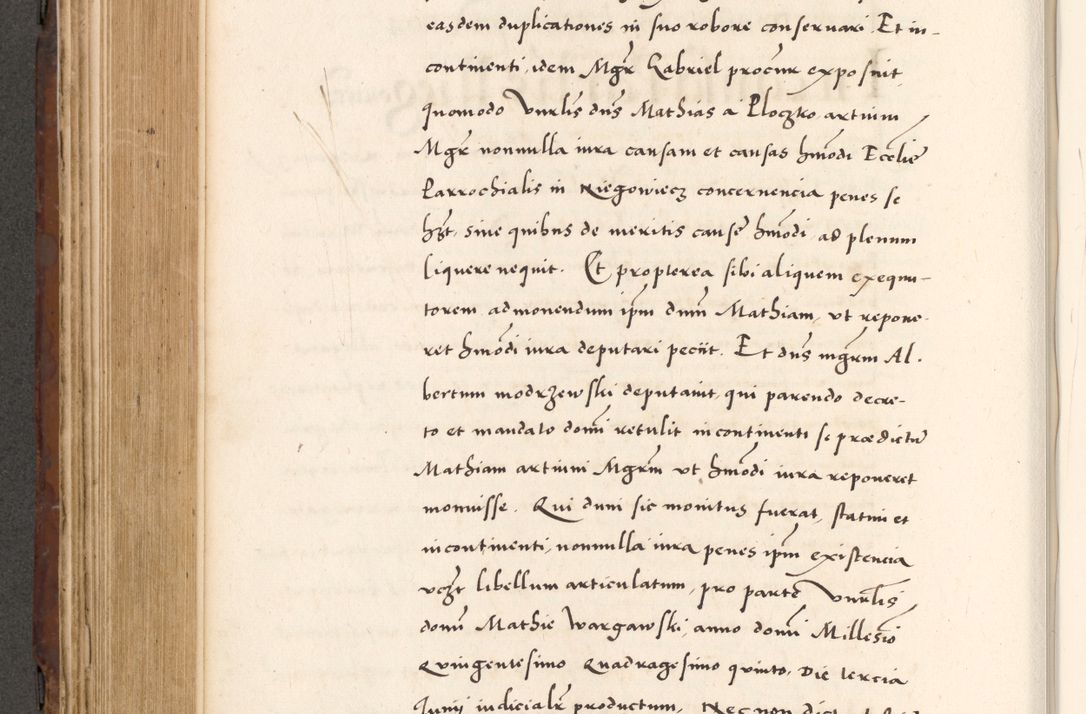 easdem duplicationes in suo robore conseruari. Et in-
continenti, idem Mgr Gabriel procur exposuit
quomodo Vnrlis dns Mathias a Ploczko artium
Mgr nonnulla iura causam et causas hmodi Ecclie
Parrochialis in Niegowiecz concernencia penes se
hzt, sine quibus de meritis cause hmodi ad plenum
liquere nequit. Et propterea sibi aliquem exequu-
torem admonendum ipm dnm Mathiam, vt repone-
ret hmodi iura deputari peciit. Et dns mgrm Al.
bertum modrzewski deputauit, qui parendo decre-
to et mandato domi retulit incontinenti se prædictu
Mathiam artium Mgrm vt hmodi iura reponeret
monuisse. Qui dum sic monitus fuerat, statim et
incontinenti, nonnulla iura penes ipm existencia
vczt libellum articulatum, pro parte Vnrlis
domi Mathie Wargawski, anno domi Millesio
Quingentesimo Quadragesimo quinto, Die tercia
Junij iudicialr productum, Necnon